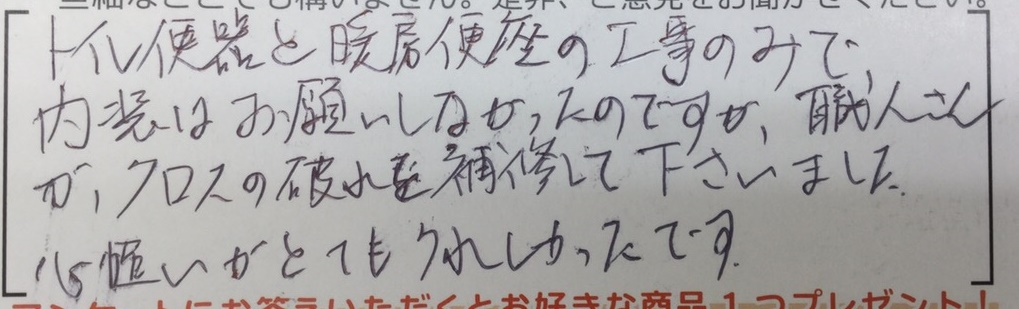 些細なことでも構いません。是非、ご意見をお聞かせください。
トイレ便器と暖房便座の工事のみで、
内装はお願いしなかったのですが、職人さん
が、クロスの破れを補修して下さいました。
心遣いがとてもうれしかったです。
アンケートにお答えいただくとお好きな商品1つプレゼント!